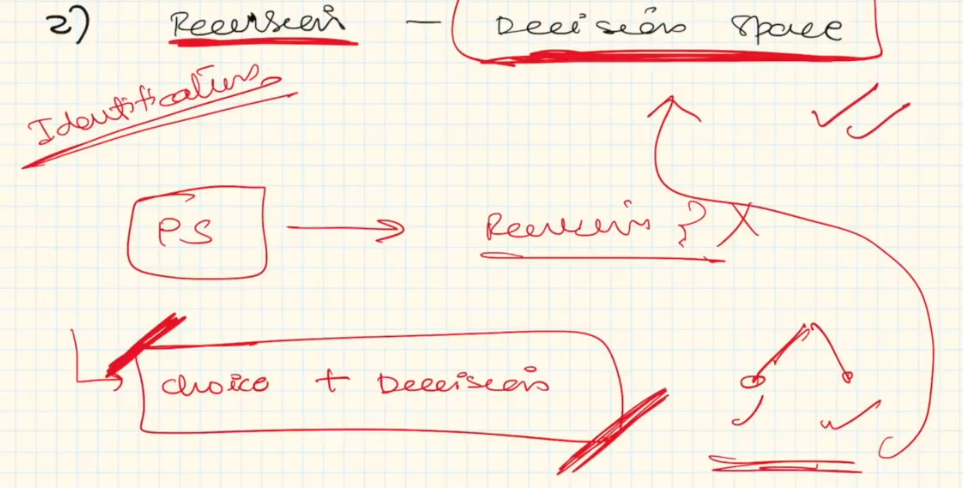 2) Recursion - Decision Space
Identification
PS → Recursion ?
choice + Decision